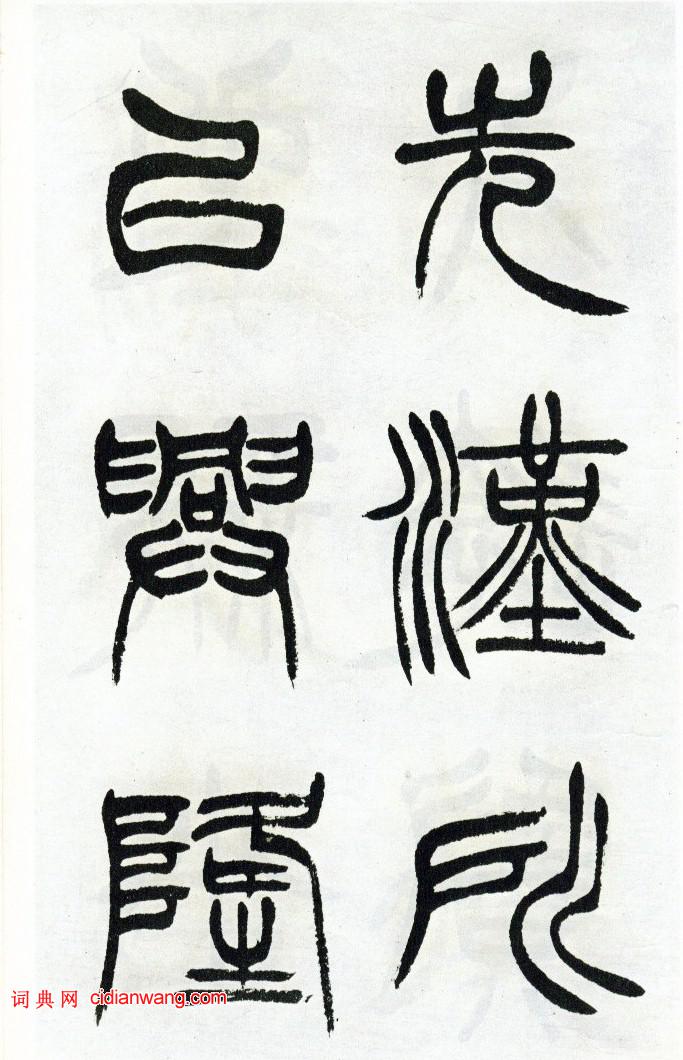 先漢所
以興隆
词典网 cidianwang.com